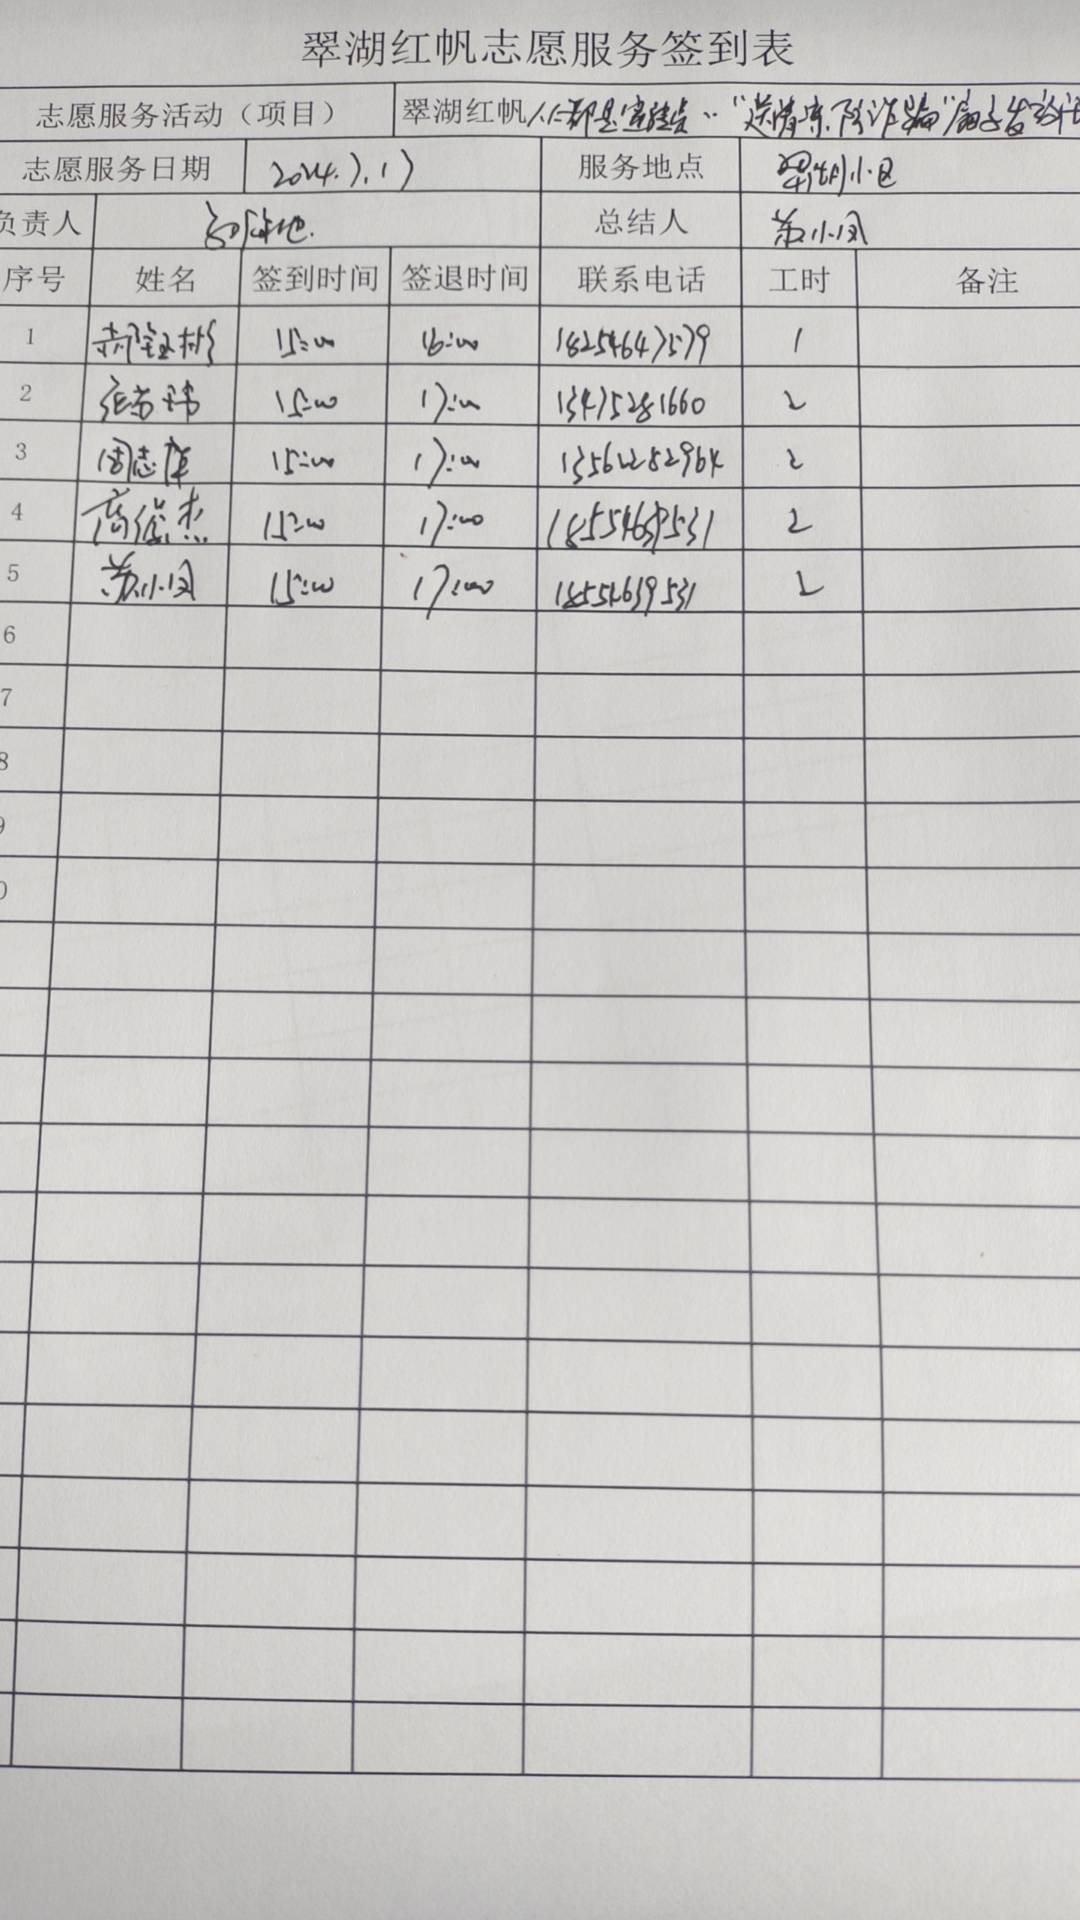 翠湖红帆志愿服务签到表
志愿服务活动（项目） 翠湖红帆人人都是宣传员··"送清凉、防诈骗"扇子发放
志愿服务日期 2024.7.17 服务地点 翠湖小区
负责人 总结人 苏小凤
序号 姓名 签到时间 签退时间 联系电话 工时 备注
1 15:00 16:00 18254647579 1
2 15:00 17:00 13475281660 2
3 周志 15:00 17:00 13561282964 2
4 高俊杰 15:00 17:00 2
5 苏小凤 15:00 17:00 18554639531 2
6
7
8
9
0